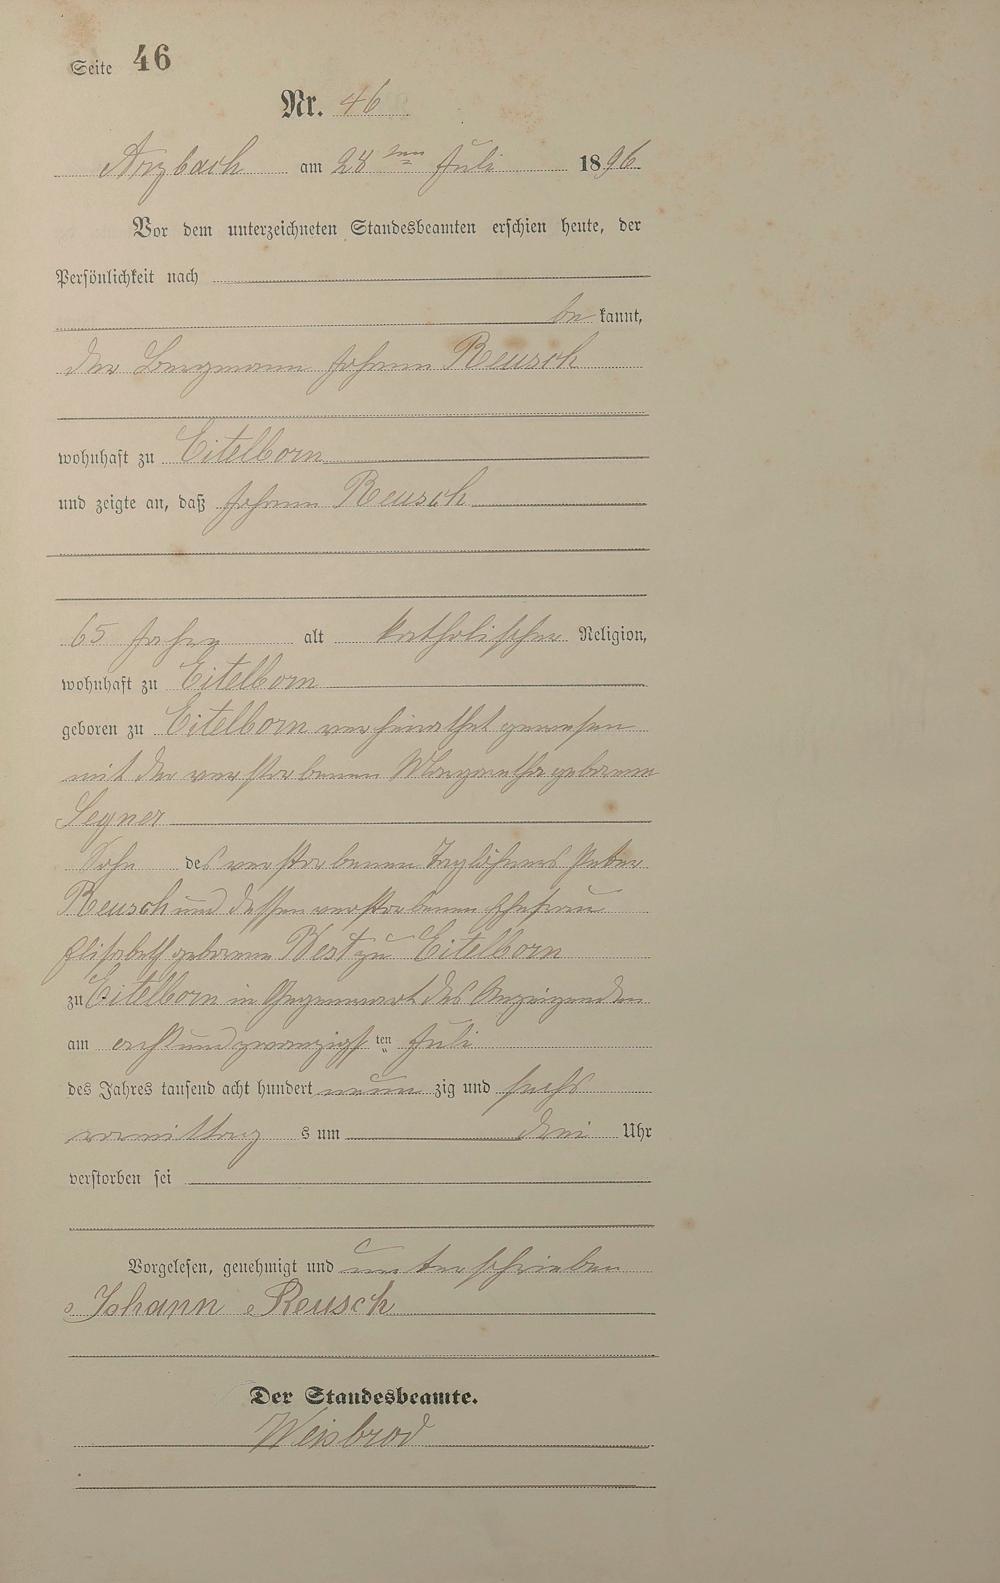 Seite 46
Nr. 46
Arzbach am 28 ten Juli 1896.
Vor dem unterzeichneten Standesbeamten erschien heute, der
Persönlichkeit nach
be kannt,
der Bergmann Johann Reusch
wohnhaft zu Eitelborn
und zeigte an, daß Johann Reusch
65 Jahre alt katholischer Religion,
wohnhaft zu Eitelborn
geboren zu Eitelborn verheirathet gewesen
mit der verstorbenen Margaretha geborene
Legner
Sohn des verstorbenen Taglöhners Peter
Reusch und dessen verstorbenen Ehefrau
Elisabeth geborene West zu Eitelborn
zu Eitelborn in Gegenwart des Anzeigenden
am achtundzwanzigsten Juli
des Jahres tausend acht hundert neun zig und sechs
vormittag s um drei Uhr
verstorben sei
Vorgelesen, genehmigt und unterschrieben
Johann Reusch
Der Standesbeamte.
Weisbrod